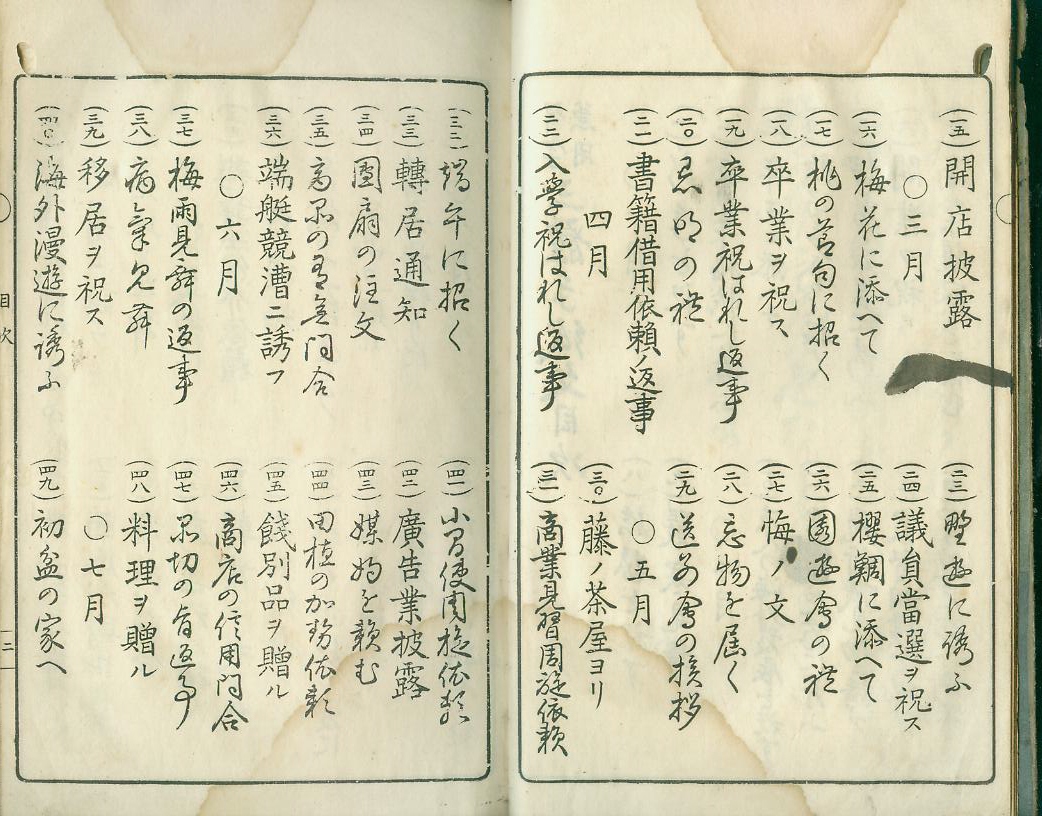 (一五)開店披露
〇三月
(一六)梅花に添へて
(一七)桃の節句に招く
(一八)卒業ヲ祝ス
(一九)卒業祝はれし返事
(二〇)忌明の禮
(二一)書籍借用依頼ノ返事
四月
(二二)入學祝はれし返事
(二三)野遊に誘ふ
(二四)議員當選ヲ祝ス
(二五)櫻鯛に添へて
(二六)園遊會の禮
(二七)悔ノ文
(二八)忘物を届く
(二九)送別會の挨拶
〇五月
(三〇)藤ノ茶屋ヨリ
(三一)商業見習周旋依頼
(三二)端午に招く
(三三)轉居通知
(三四)團扇の注文
(三五)高不の有無問合
(三六)端艇競漕ニ誘フ
〇六月
(三七)梅雨見舞の返事
(三八)病氣見舞
(三九)移居ヲ祝ス
(四〇)海外漫遊に誘ふ
(四一)小間使周旋依頼
(四二)廣告業披露
(四三)媒妁を頼む
(四四)田植の加勢依頼
(四五)餞別品ヲ贈ル
(四六)商店の信用問合
(四七)品切の旨返事
(四八)料理ヲ贈ル
〇七月
(四九)初盆の家へ
目次
三